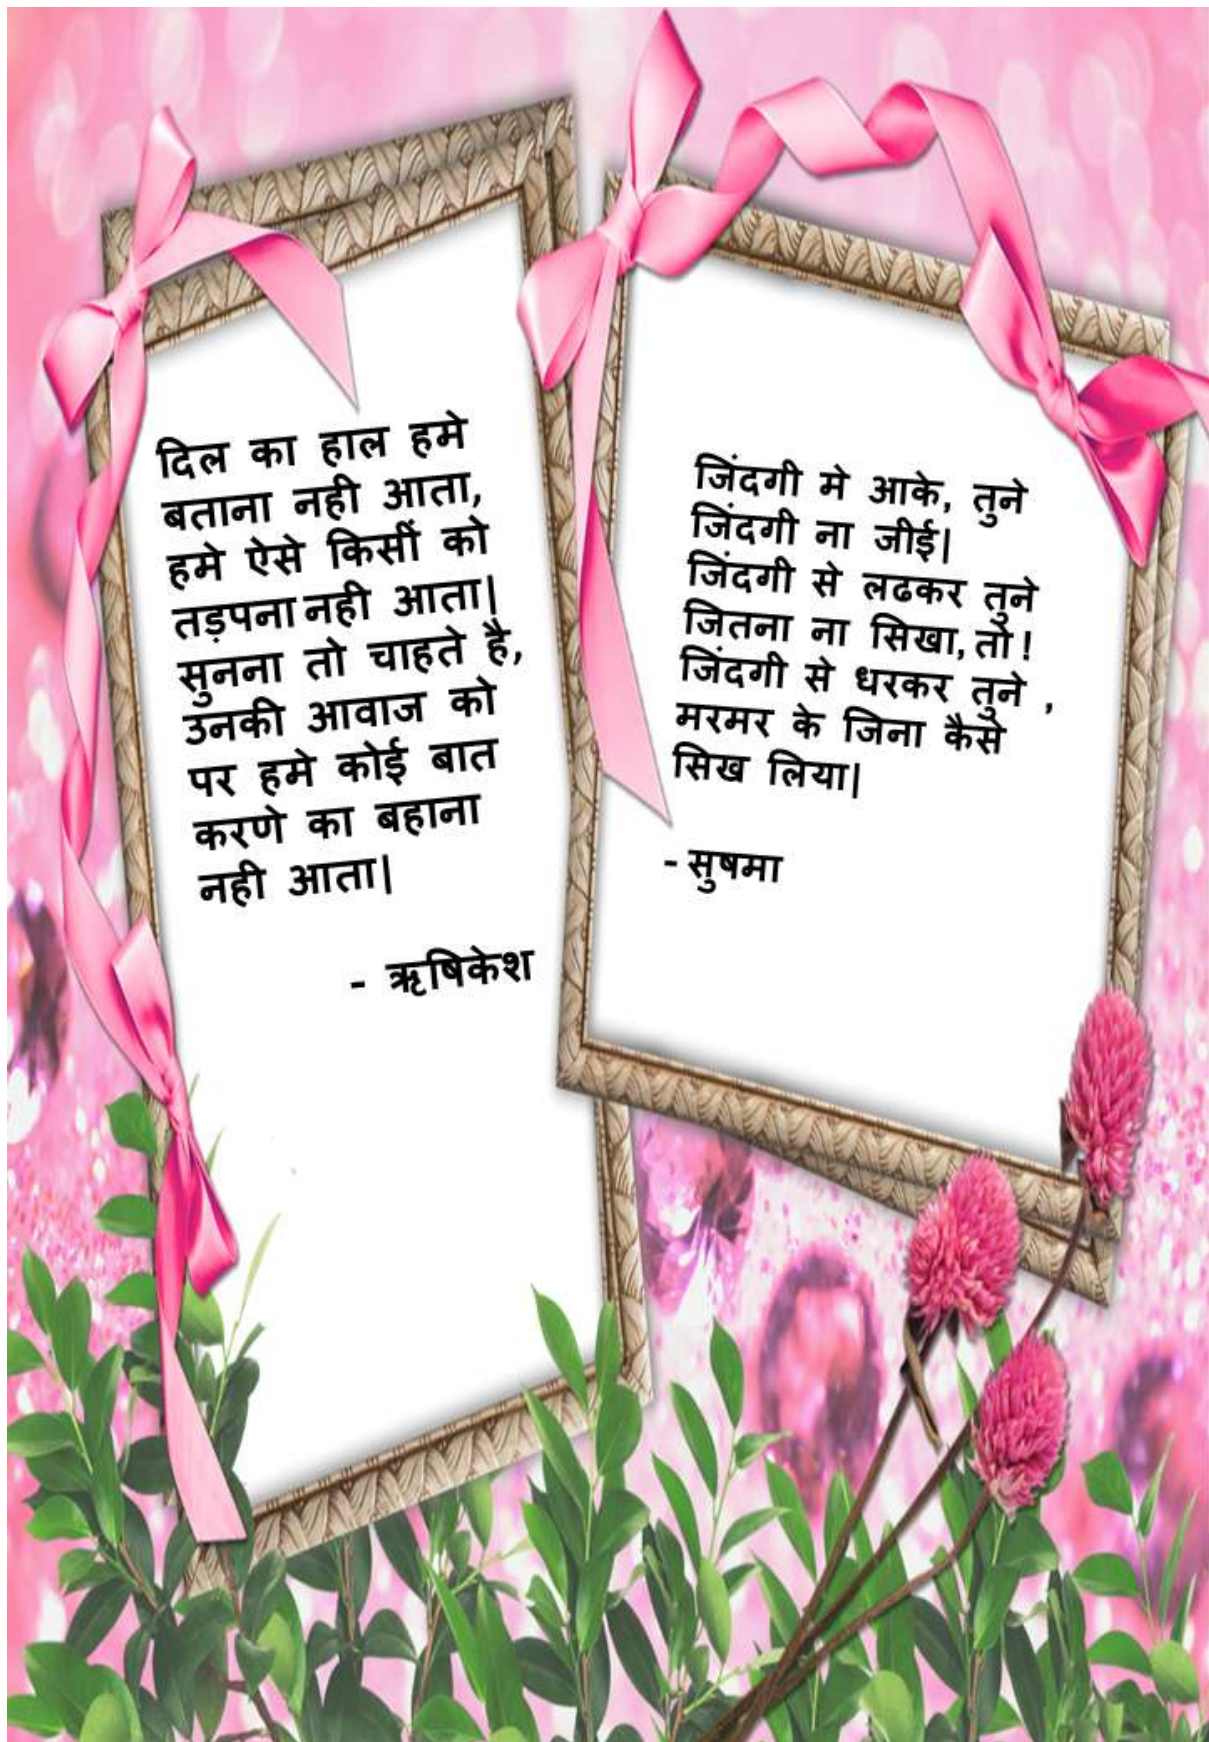 दिल का हाल हमे
बताना नही आता,
हमे ऐसे किसीं को
तड़पना नही आता|
सुनना तो चाहते है,
उनकी आवाज को
पर हमे कोई बात
करणे का बहाना
नही आता|
- ऋषिकेश
जिंदगी मे आके, तुने
जिंदगी ना जीई|
जिंदगी से लढकर तुने
जितना ना सिखा, तो !
जिंदगी से धरकर तुने ,
मरमर के जिना कैसे
सिख लिया|
- सुषमा